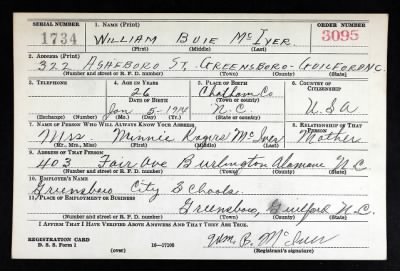 SERIAL NUMBER
1. NAME (Print)
ORDER NUMBER
1734
WILLIAM BUIE McIVER.
3095
(First) (Middle) (Last)
2. ADDRESS (Print)
322 ASHEBORO ST. GREENSBORO-GUILFORD N.C.
(Number and street or R. F. D. number) (Town) (County) (State)
3. TELEPHONE
4. AGE IN YEARS
5. PLACE OF BIRTH
6. COUNTRY OF CITIZENSHIP
26
Chatham Co.
DATE OF BIRTH
(Town or county)
Jan 5-1914
N.C.
U.S.A
(Exchange) (Number)
(Mo.) (Day) (Yr.)
(State or country)
7. NAME OF PERSON WHO WILL ALWAYS KNOW YOUR ADDRESS
8. RELATIONSHIP OF THAT PERSON
Mrs. Minnie Rogers McIver
Mother
(Mr., Mrs., Miss) (First) (Middle) (Last)
9. ADDRESS OF THAT PERSON
403 Fair Ave Burlington Alamance N.C
(Number and street or R. F. D. number) (Town) (County) (State)
10. EMPLOYER'S NAME
Greensboro City Schools.
11. PLACE OF EMPLOYMENT OR BUSINESS
Greensboro, Guilford N.C.
(Number and street or R. F. D. number) (Town) (County) (State)
I AFFIRM THAT I HAVE VERIFIED ABOVE ANSWERS AND THAT THEY ARE TRUE.
REGISTRATION CARD
D. S. S. Form 1
(over)
16-17105
Wm. B. McIver
(Registrant's signature)